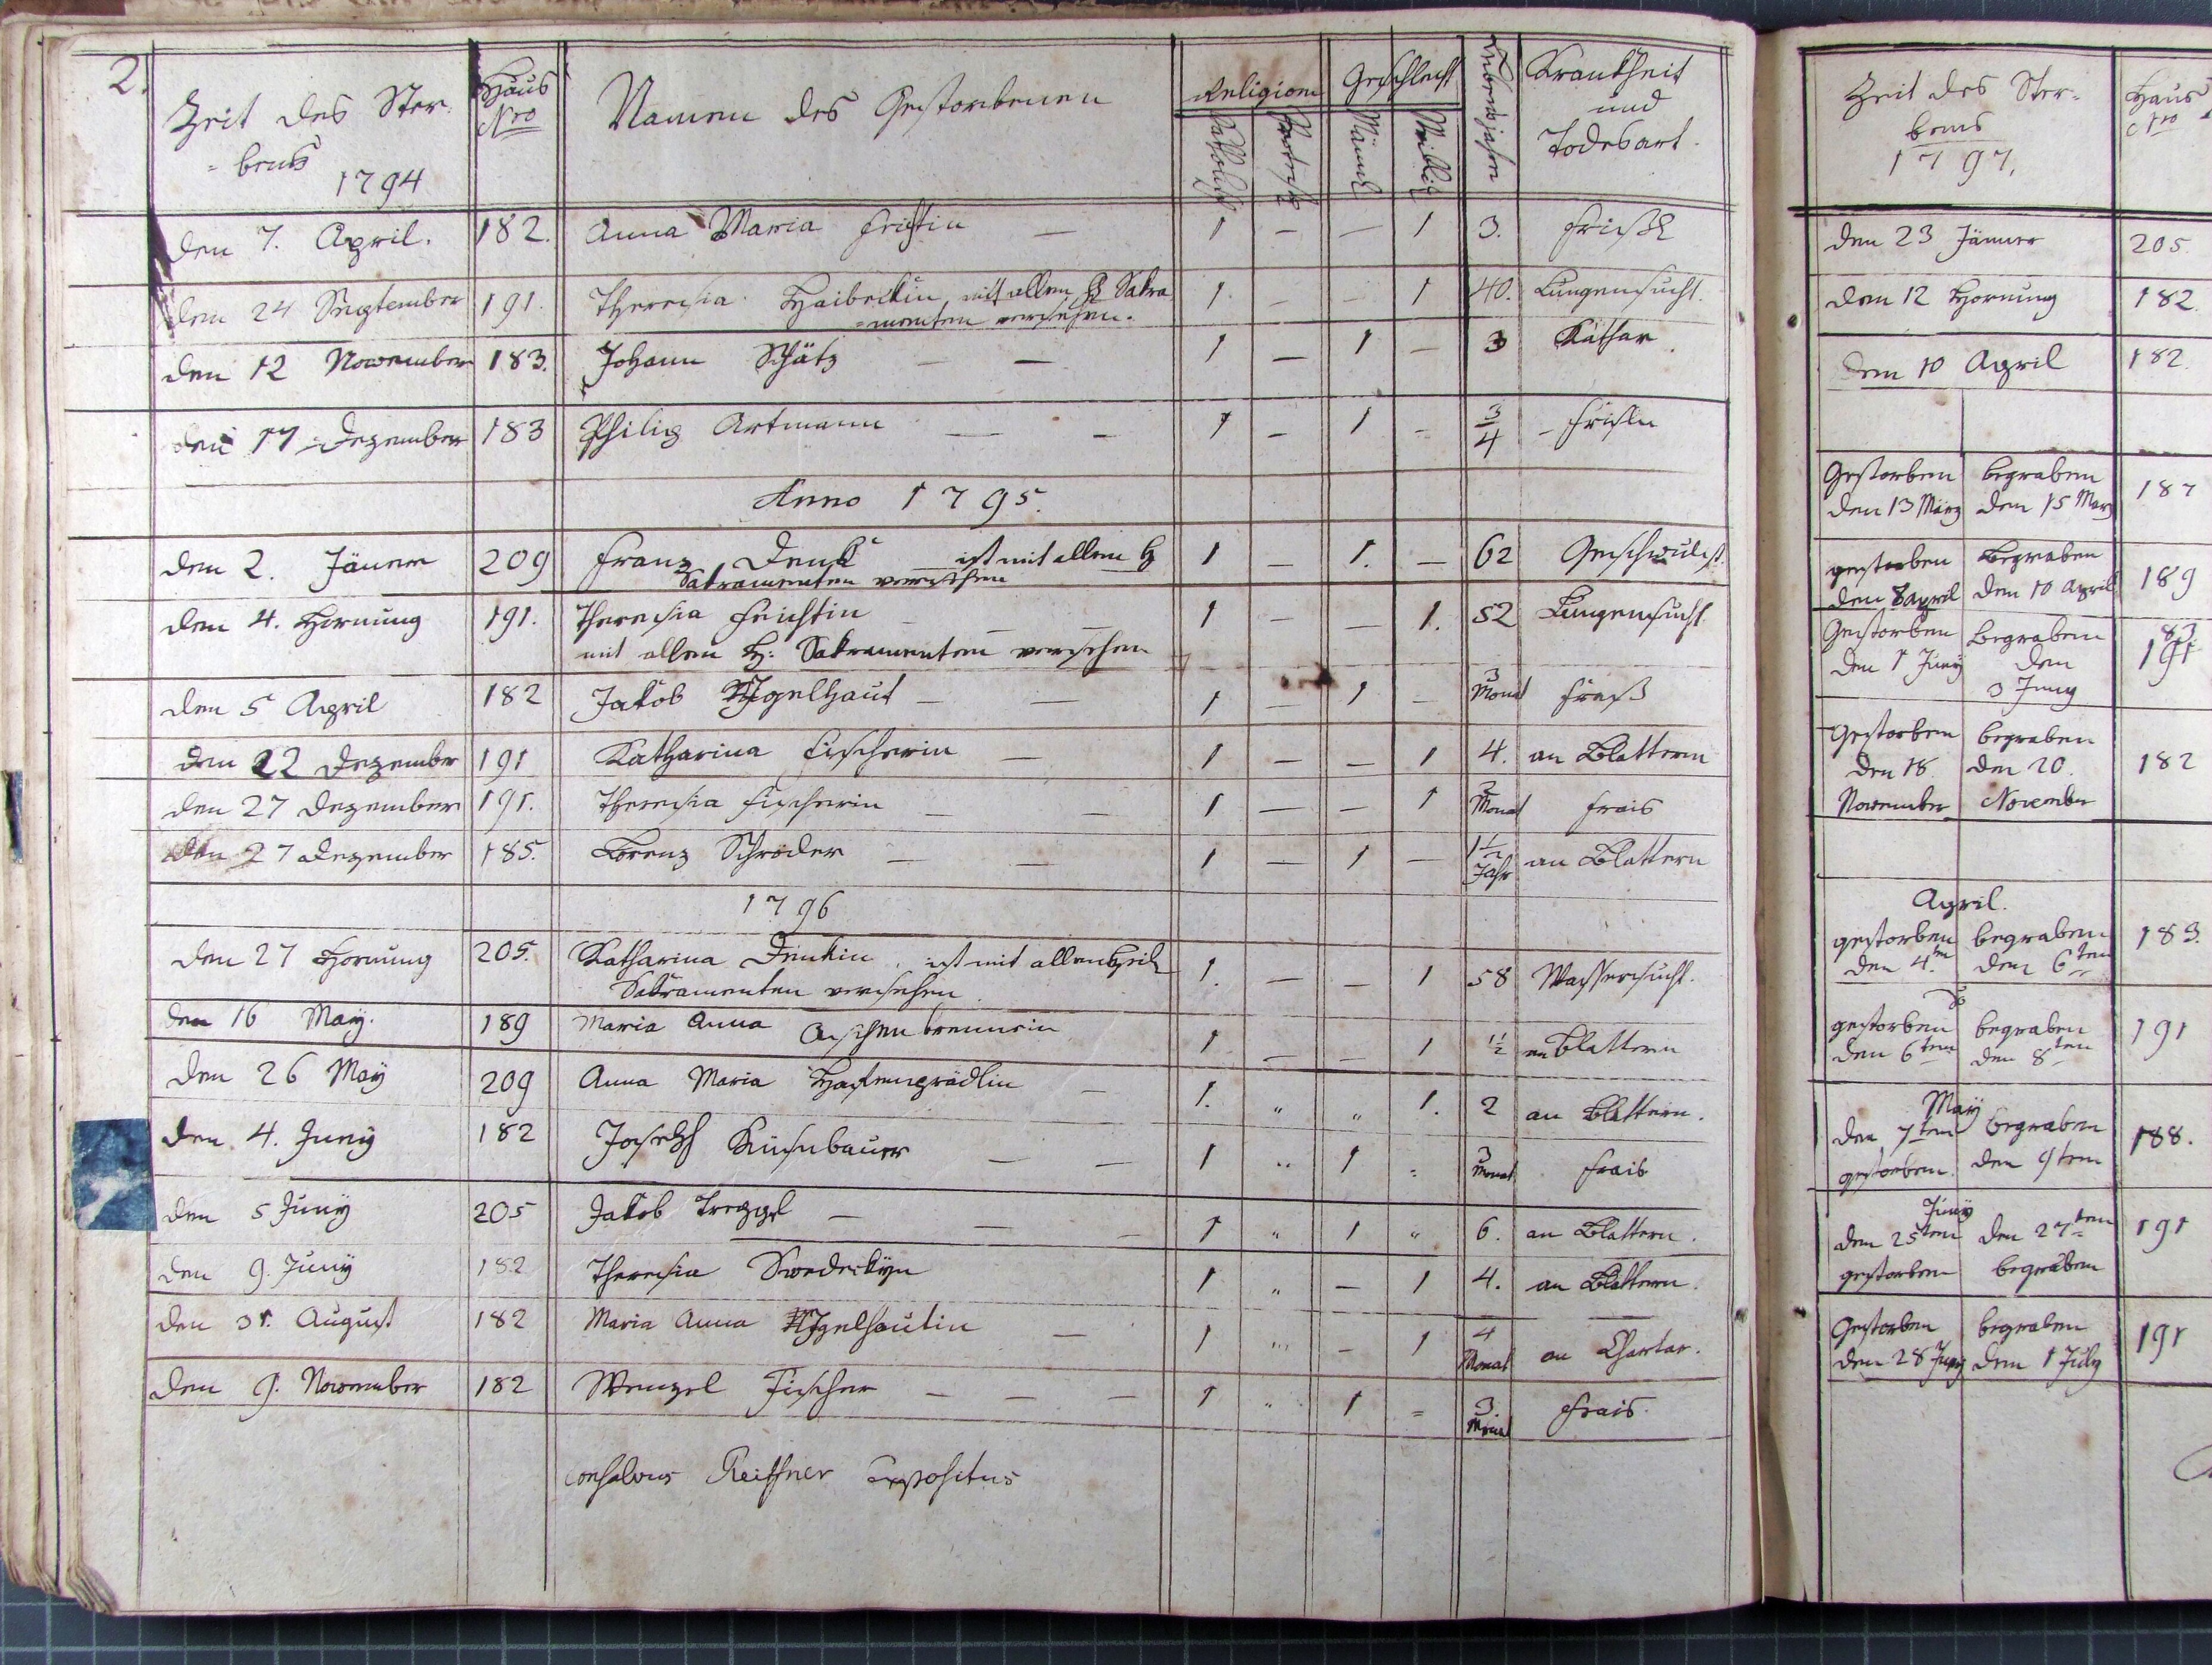 2.
Zeit des Ster-
=bens 1794
Haus
Nro
Namen des Gestorbenen
Religion
Geschlecht
Katholisch
Männl
Weiblich
Lebensjahre
Krankheit
und
Todesart.
den 7. April. 182. Anna Maria — 1 — — 1 3.
den 24 September 191. Theresia Haibeckin, mit allen H Sakra 1 — — 1 40. Lungensucht.
=menten versehen.
den 12 November 183. Johann Schätz — — 1 — 1 — 3 Kathar.
den 17 Dezember 183 Philip Artmann — — 1 — 1 — 3/4
Anno 1795.
den 2. Jäner 209 Franz Denk ist mit allen H 1 — 1. — 62 Geschwulst.
Sakramenten versehen
den 4. Hornung 191. Theresia Feichtin — — — 1 — — 1. 52 Lungensucht
mit allen H: Sakramenten versehen
den 5 April 182 Jakob Igelhaut — — 1 — 1 — 3 Monat Fraiß
den 22 Dezember 191 Katharina Fischerin — 1 — — 1 4. an Blattern
den 27 Dezember 191. Theresia Fischerin — — 1 — — 1 Monat Frais
den 27 Dezember 185. Lorenz Schroder — — 1 — 1 — 1 1/2 Jahr an Blattern
1796
den 27 Hornung 205. Katharina Denkin. ist mit allen Heil 1. — — 1 58 Wassersucht.
Sakramenten versehen.
den 16 May. 189 Maria Anna Aschenbrennerin 1 — — 1 1/2 an Blattern
den 26 May 209 Anna Maria — 1. " " 1. 2 an Blattern.
den 4. Juny 182 Joseph — — 1 " 1 " 3 Monat Frais
den 5 Juny 205 Jakob Treppl — — — 1 " 1 " 6. an Blattern.
den 9. Juny 182 Theresia Swedeckyn 1 " — 1 4. an Blattern.
den 31. August 182 Maria Anna Igelhautin — 1 " — 1 4 Monat an Chartar.
den 9. November 182 Wenzel Fischer — — — 1 " 1 = 3 Monat Frais.
Reissner Expositus
Zeit des Ster-
bens
1797,
Haus
Nro
den 23 Jänner 205.
den 12 Hornung 182.
den 10 April 182.
Gestorben begraben 187
den 13 März den 15 März
gestorben Begraben 189
den 8 April den 10 April
Gestorben Begraben 183
den 1 Juny den 191
3 Juny
Gestorben begraben
den 18. den 20. 182
November November
April.
gestorben begraben 183.
den 4.ten den 6ten
gestorben begraben 191
den 6ten den 8ten
May
den 7ten begraben 188.
gestorben den 9ten
Juny
den 25ten den 27ten 191
gestorben begraben
Gestorben begraben 191
den 28 Juny den 1 July